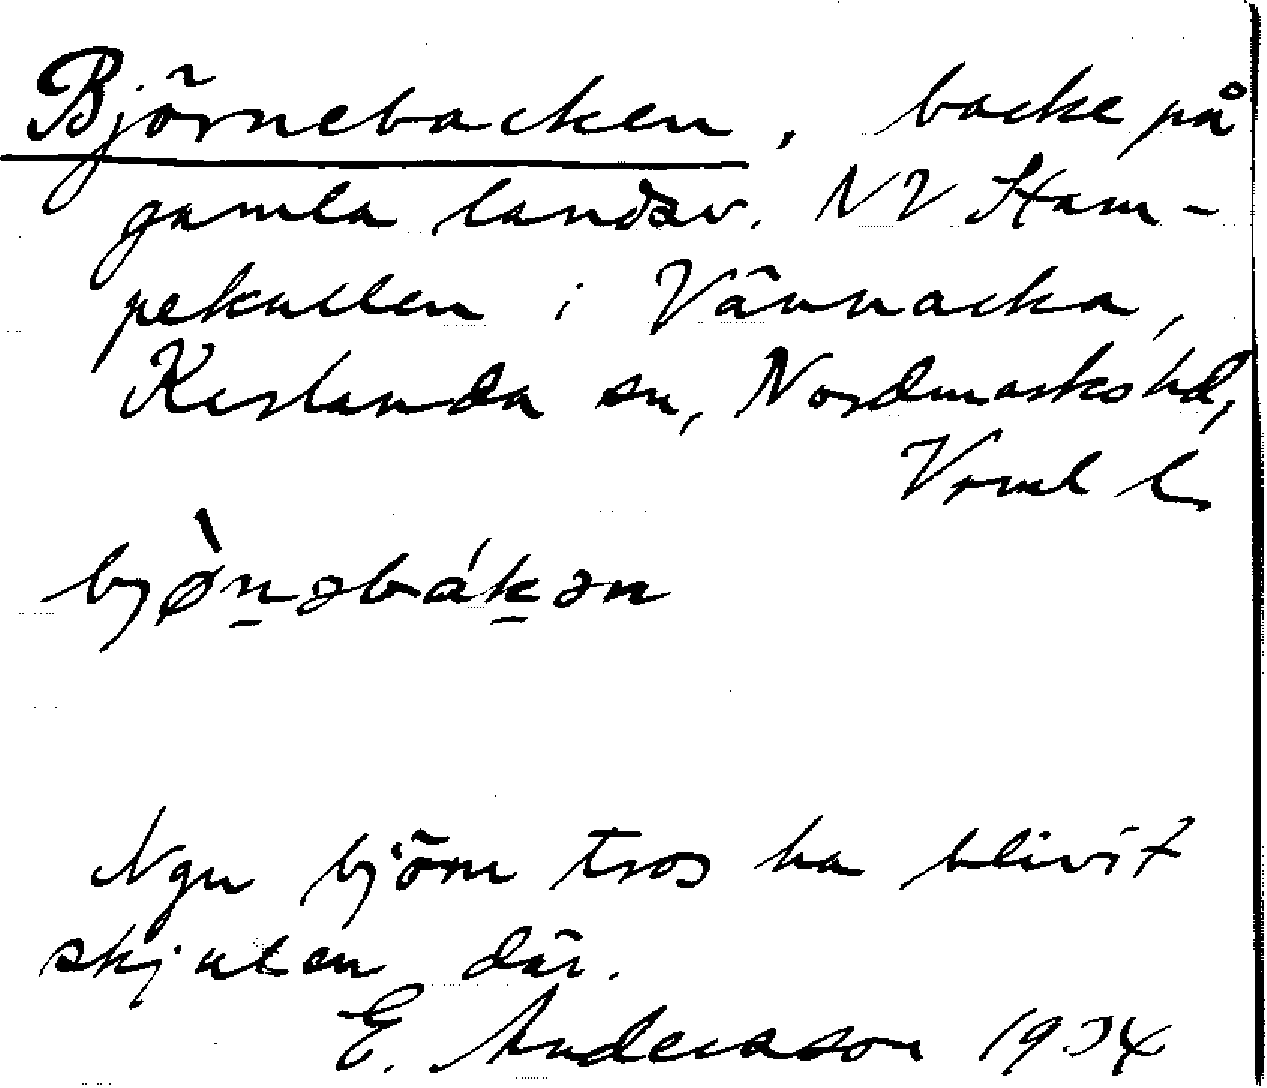 Björnebacken, backe på
gamla landsv. NV Stam-
pekullen i Vännacka,
Karlanda sn, Nordmarks hd,
Vrml l
bjø̀nəbákən
Ngn björn tros ha blivit
skjuten där.
E. Andersson 1934